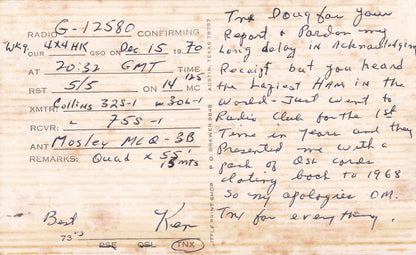 RADIO G-12580 CONFIRMING
Wkg OUR 4X4HK QSO ON Dec 15 1970
AT 20:32 GMT TIME
RST 5/5 ON 14 MC SSB
XMTR: Collins 32S-1 w 30L-1
RCVR: " 75S-1
ANT Mosley MCQ-3B
REMARKS: Quad x 55'
15 mts
Best Ken
73'S
PSE QSL TNX
LITTLE PRINT SHOP P. O. DRAWER AUSTIN, TEXAS 78757
Tnx Doug for your
Report & Pardon my
Long delay in Acknowledging
Receipt but you heard
the Laziest HAM in the
World - Just went to
Radio Club for the 1st
Time in Years and they
Presented me with a
pack of QSL cards
dating back to 1968
So my apologies OM.
Tnx for everything.